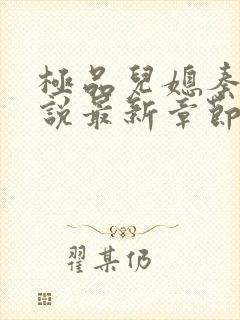 極品兒媳秦
說最新章節
翟某仍